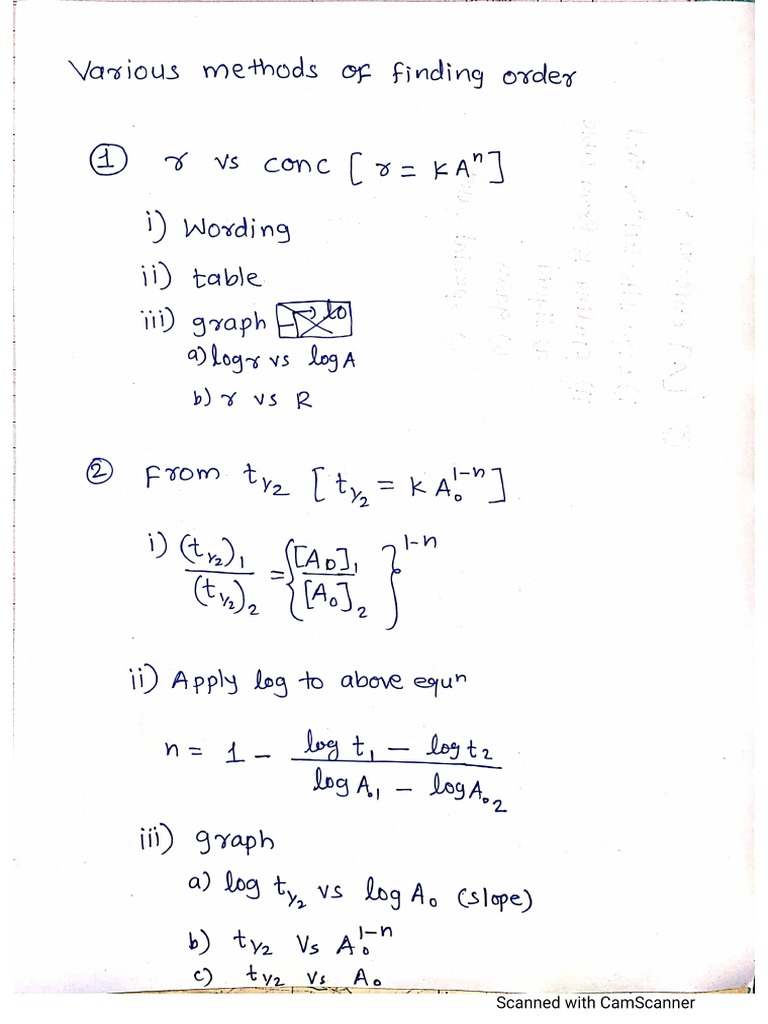 Various methods of finding order
① r vs conc [ r = KAⁿ ]
i) Wording
ii) table
iii) graph
a) log r vs log A
b) r vs R
② From t₁/₂ [ t₁/₂ = K A₀¹⁻ⁿ ]
i) (t₁/₂)₁ / (t₁/₂)₂ = { [A₀]₁ / [A₀]₂ }¹⁻ⁿ
ii) Apply log to above equn
n = 1 - (log t₁ - log t₂) / (log A₀₁ - log A₀₂)
iii) graph
a) log t₁/₂ vs log A₀ (slope)
b) t₁/₂ Vs A₀¹⁻ⁿ
c) t₁/₂ vs A₀
Scanned with CamScanner